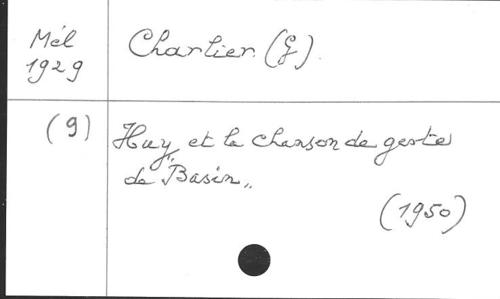 Mél
1929
Charlier (G).
(9)
Huy et la chanson de geste
de "Basin"
(1950)